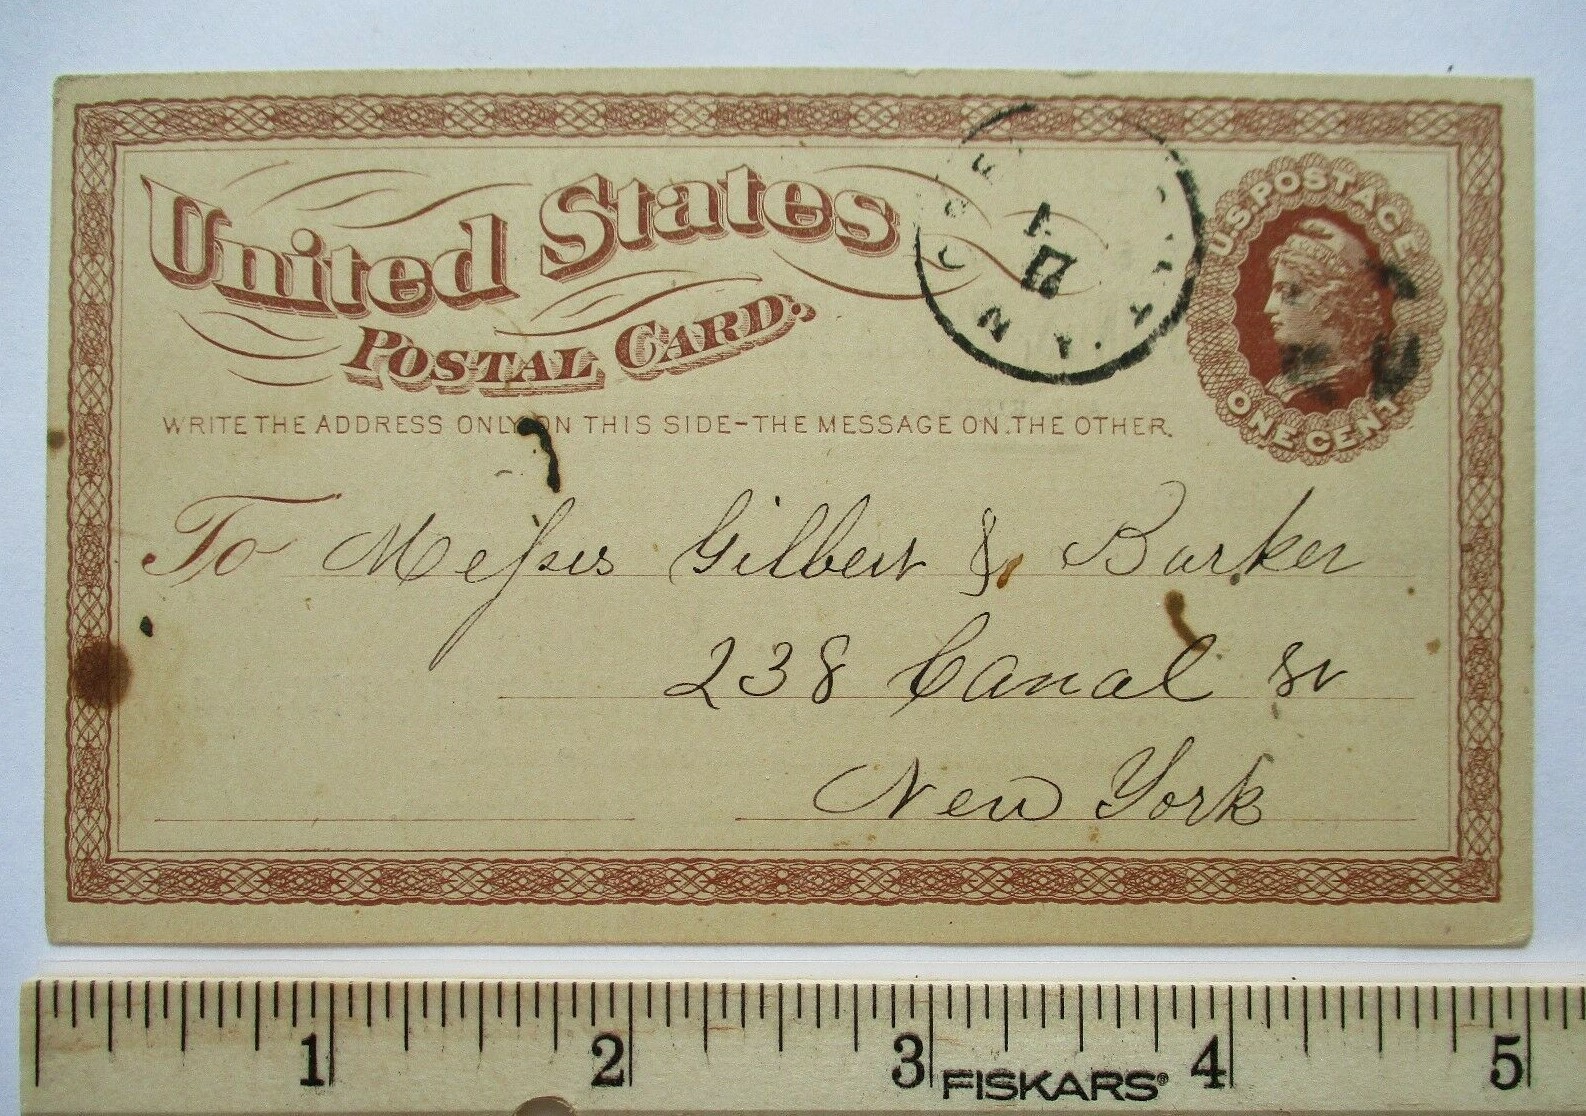 United States
POSTAL CARD.
U.S. POSTAGE
ONE CENT
WRITE THE ADDRESS ONLY ON THIS SIDE-THE MESSAGE ON THE OTHER.
To Messrs Gilbert & Barker
238 Canal St
New York
1 2 3 4 5
FISKARS®